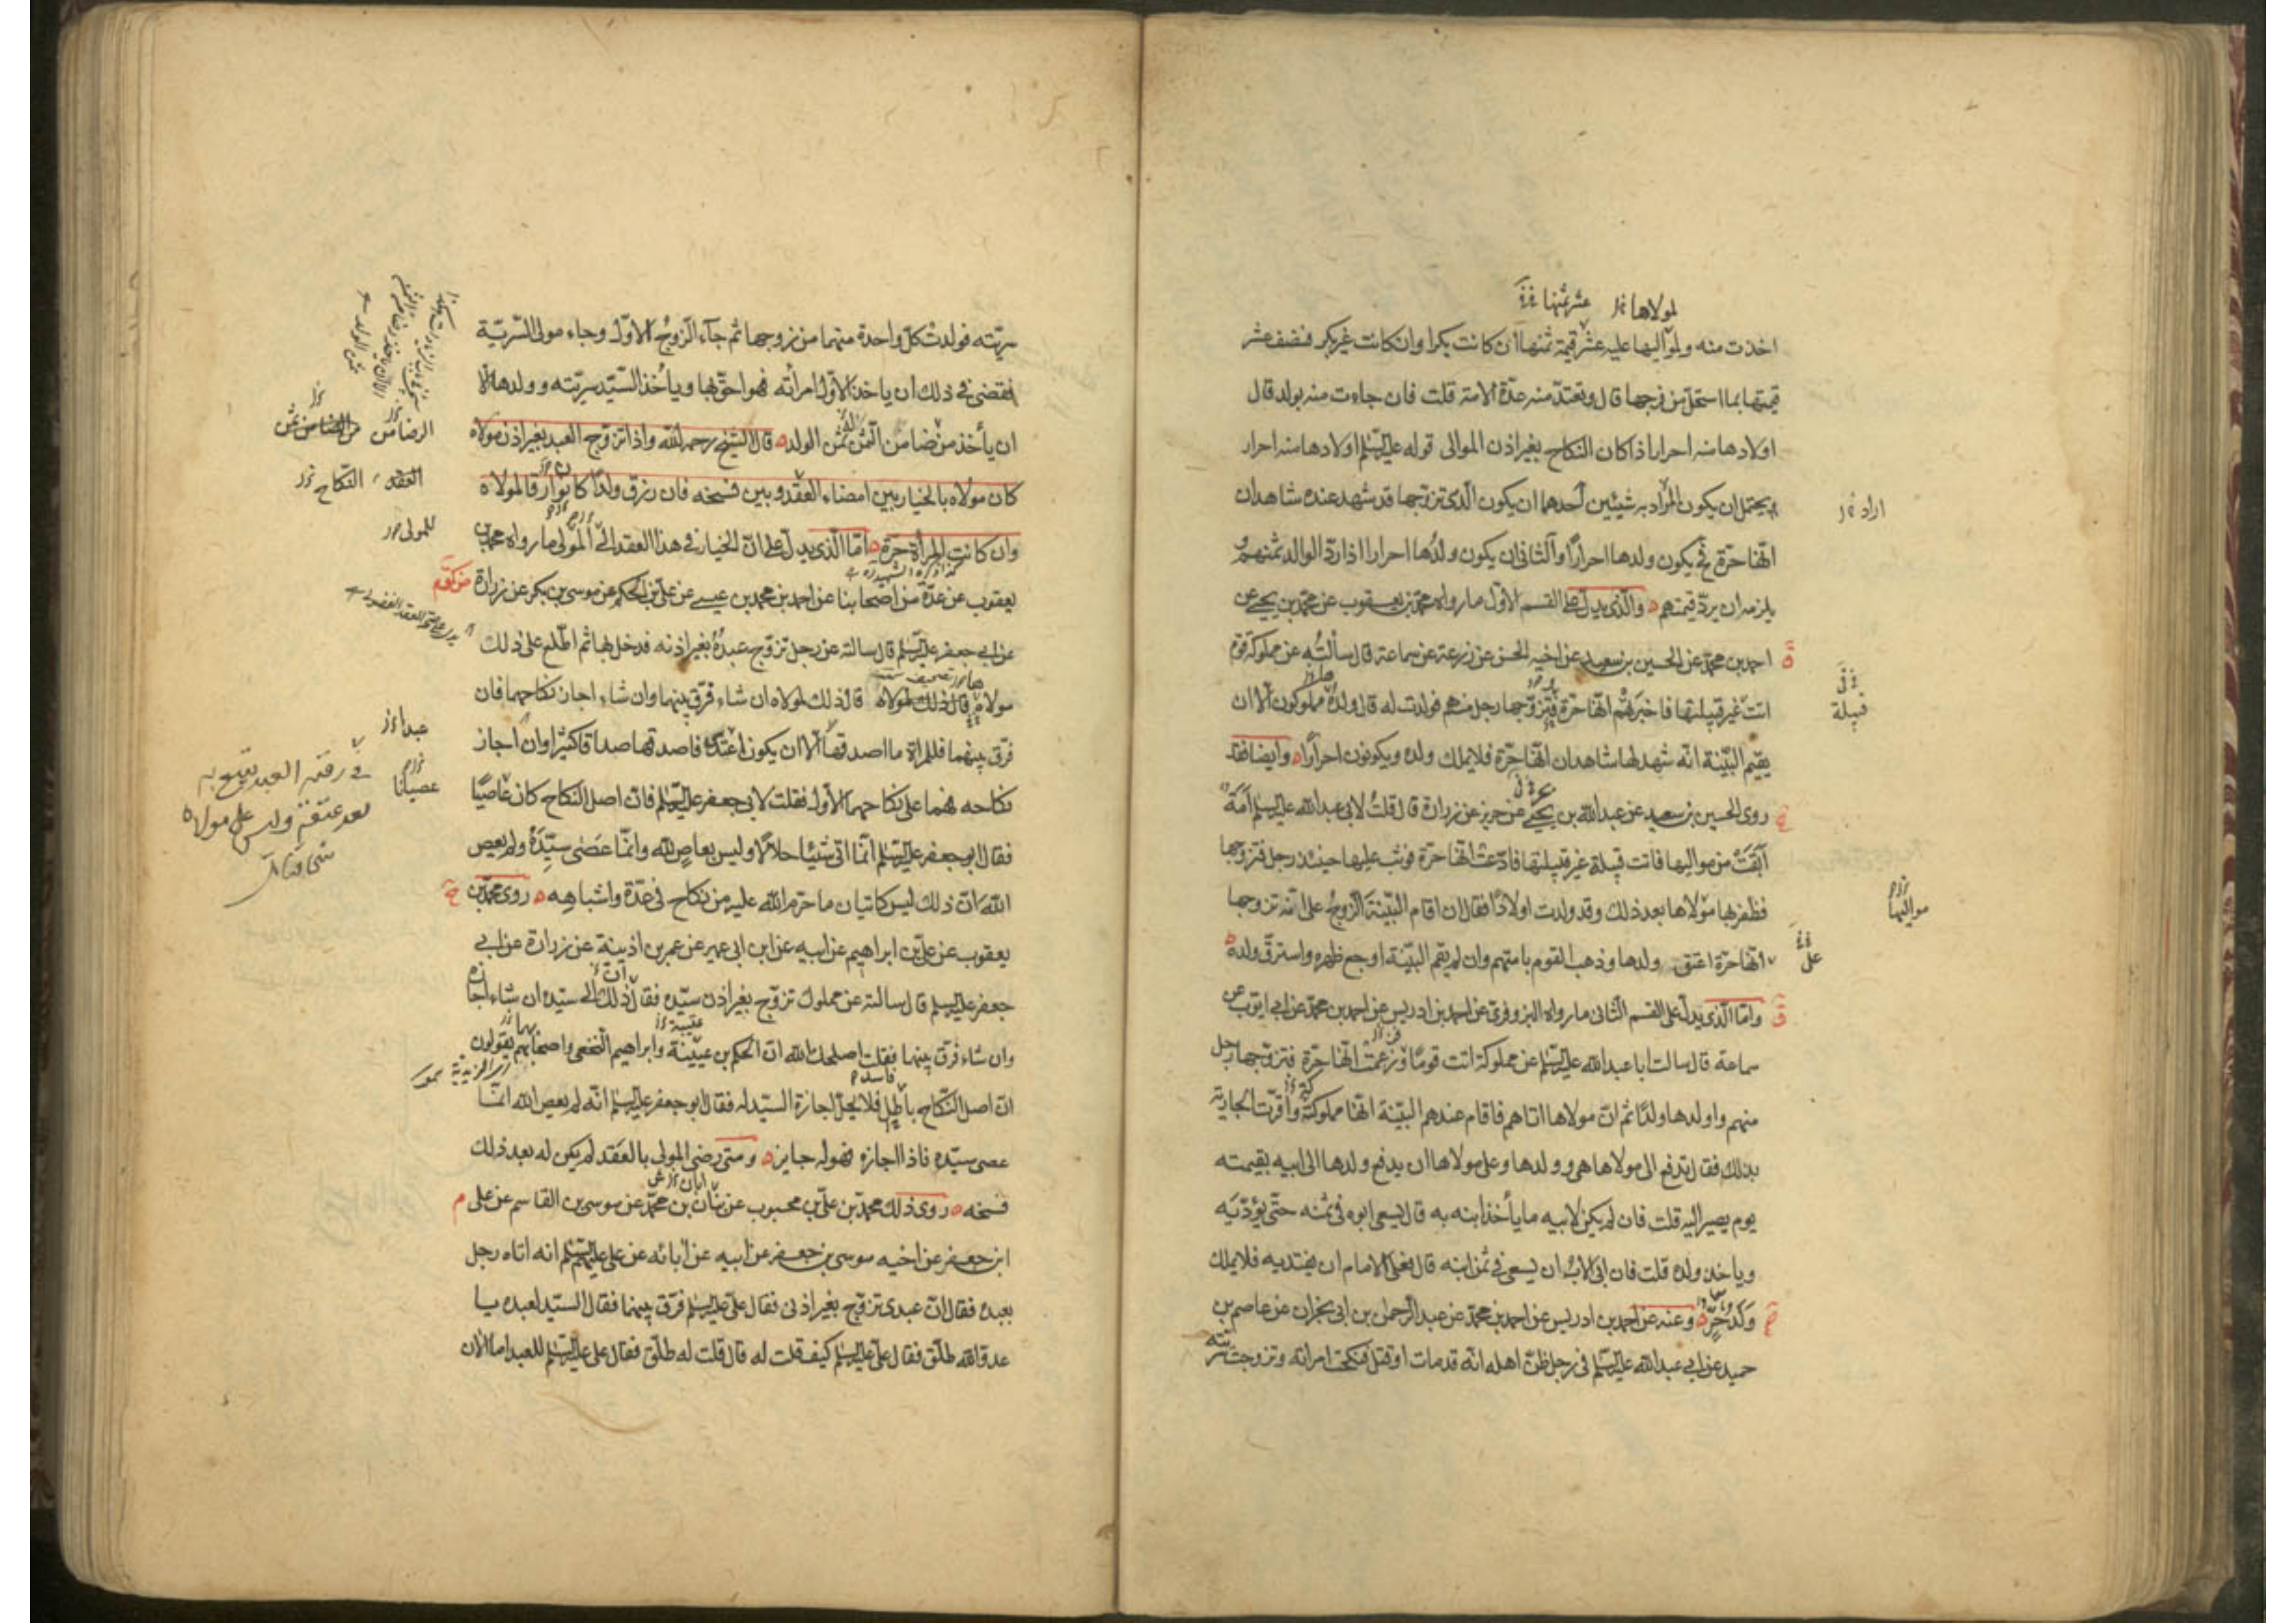 لمولاها عشر ثمنها
اخذت منه ولمواليها عليه عشر قيمة ثمنها ان كانت بكرا وان كانت غير بكر فنصف عشر
قيمتها بما استحل من فرجها قال وتعتد منه عدة الامة قلت فان جاءت منه بولد قال
اولادها منه احرار اذا كان النكاح بغير اذن الموالى قوله عليه السلم اولادها منه احرار
يحتمل ان يكون المراد به شيئين احدهما ان يكون الذى تزوجها قد شهد عنده شاهدان
اراد
انها حرة فح يكون ولدها احرارًا والثانى ان يكون ولدها احرارا اذا رد الوالد ثمنهم و
يلزمه ان يرد قيمتهم والذى يدل على القسم الاول ما رواه محمد بن يعقوب عن محمد بن يحيى عن
احمد بن محمد عن الحسين بن سعيد عن اخيه الحسن عن زرعة عن سماعة قال سألته عن مملوكة قوم
اتت غير قبيلتها فاخبرتهم انها حرة فتزوجها رجل منهم فولدت له قال ولده مملوكون الا ان
قبيلة
يقيم البينة انه شهد لها شاهدان انها حرة فلا يملك ولده ويكونون احرارًا وايضا فقد
روى الحسين بن سعيد عن عبد الله بن يحيى عن حريز عن زرارة قال قلت لابى عبد الله عليه السلم امة
ابقت من مواليها فاتت قبيلة غير قبيلتها فادعت انها حرة فوثب عليها حينئذ رجل فتزوجها
فظفر بها مولاها بعد ذلك وقد ولدت اولادًا فقال ان اقام البينة الزوج على انه تزوجها
مواليها
انها حرة اعتق ولدها وذهب القوم بامتهم وان لم يقم البينة اوجع ظهره واسترق ولده
على
واما الذى يدل على القسم الثانى ما رواه البزوفرى عن احمد بن ادريس عن احمد بن محمد عن ابى ايوب عن
سماعة قال سالت ابا عبد الله عليه السلم عن مملوكة اتت قومًا وزعمت انها حرة فتزوجها رجل
منهم واولدها ولدًا ثم ان مولاها اتاهم فاقام عندهم البينة انها مملوكة واقرت الجارية
بذلك فقال تدفع الى مولاها هى وولدها وعلى مولاها ان يدفع ولدها الى ابيه بقيمته
يوم يصير اليه قلت فان لم يكن لابيه ما يأخذ ابنه به قال يسعى ابوه فى ثمنه حتى يؤديه
وياخذ ولده قلت فان ابى الاب ان يسعى فى ثمن ابنه قال فعلى الامام ان يفتديه فلا يملك
ولد حر وعنه عن احمد بن ادريس عن احمد بن محمد عن عبد الرحمان بن ابى نجران عن عاصم بن
حميد عن ابى عبد الله عليه السلم فى رجل ظن اهله انه قد مات او قتل فنكحت امراته وتزوجت سريته
سريته فولدت كل واحدة منهما من زوجها ثم جاء الزوج الاول وجاء مولى السرية
فقضى فى ذلك ان ياخذ الاول امرأته فهو احق بها وياخذ السيد سريته وولدها الا
ان يأخذ من ضامن الثمن ثمن الولد قال الشيخ رحمه الله واذا تزوج العبد بغير اذن مولاه
كان مولاه بالخيار بين امضاء العقد وبين فسخه فان رزق ولدًا كانوا رقا لمولاه
العقد النكاح
وان كانت المرأة حرة اما الذى يدل على ان الخيار فى هذا العقد الى المولى ما رواه محمد بن
للمولى
يعقوب عن عدة من اصحابنا عن احمد بن محمد بن عيسى عن على بن الحكم عن موسى بن بكر عن زرارة
عن ابى جعفر عليه السلم قال سالته عن رجل تزوج عبده بغير اذنه فدخل بها ثم اطلع على ذلك
مولاه فقال ذلك لمولاه قال ذلك لمولاه ان شاء فرق بينهما وان شاء اجاز نكاحهما فان
فرق بينهما فللمراة ما اصدقها الا ان يكون اعتدى فاصدقها صداقا كثيرا وان اجاز
نكاحه فهما على نكاحهما الاول فقلت لابى جعفر عليه السلم فان اصل النكاح كان عاصيًا
عصيانا
فقال ابو جعفر عليه السلم انما اتى شيئا حلالا وليس بعاص لله وانما عصى سيده ولم يعص
الله ان ذلك ليس كاتيان ما حرم الله عليه من نكاح فى عدة واشباهه روى محمد بن
يعقوب عن على بن ابراهيم عن ابيه عن ابن ابى عمير عن عمر بن اذينة عن زرارة عن ابى
جعفر عليه السلم قال سالته عن مملوك تزوج بغير اذن سيده فقال ذلك الى سيده ان شاء اجازه
وان شاء فرق بينهما فقلت اصلحك الله ان الحكم بن عيينة وابراهيم النخعى واصحابهم يقولون
ان اصل النكاح باطل فلا يحل اجازة السيد له فقال ابو جعفر عليه السلم انه لم يعص الله انما
عصى سيده فاذا اجازه فهو له جايز ومتى رضى المولى بالعقد لم يكن له بعد ذلك
فسخه روى ذلك محمد بن على بن محبوب عن بنان بن محمد عن موسى بن القاسم عن على
ابن جعفر عن اخيه موسى بن جعفر عن ابيه عن ابائه عن على عليهم السلم انه اتاه رجل
بعبده فقال ان عبدى تزوج بغير اذنى فقال على عليه السلم فرق بينهما فقال السيد لعبده يا
عدو الله طلق فقال على عليه السلم كيف قلت له قال قلت له طلق فقال على عليه السلم للعبد اما الان